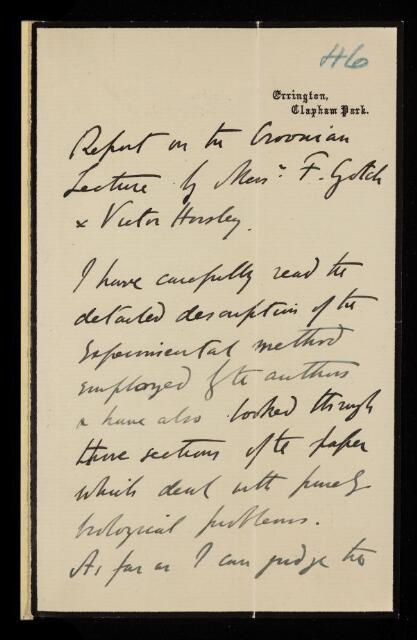 46
Errington,
Clapham Park.
Report on the Croonian
Lecture by Messrs F. Gotch
& Victor Horsley.
I have carefully read the
detailed description of the
experimental method
employed by the authors
& have also looked through
those sections of the paper
which deal with purely
biological problems.
As far as I can judge the